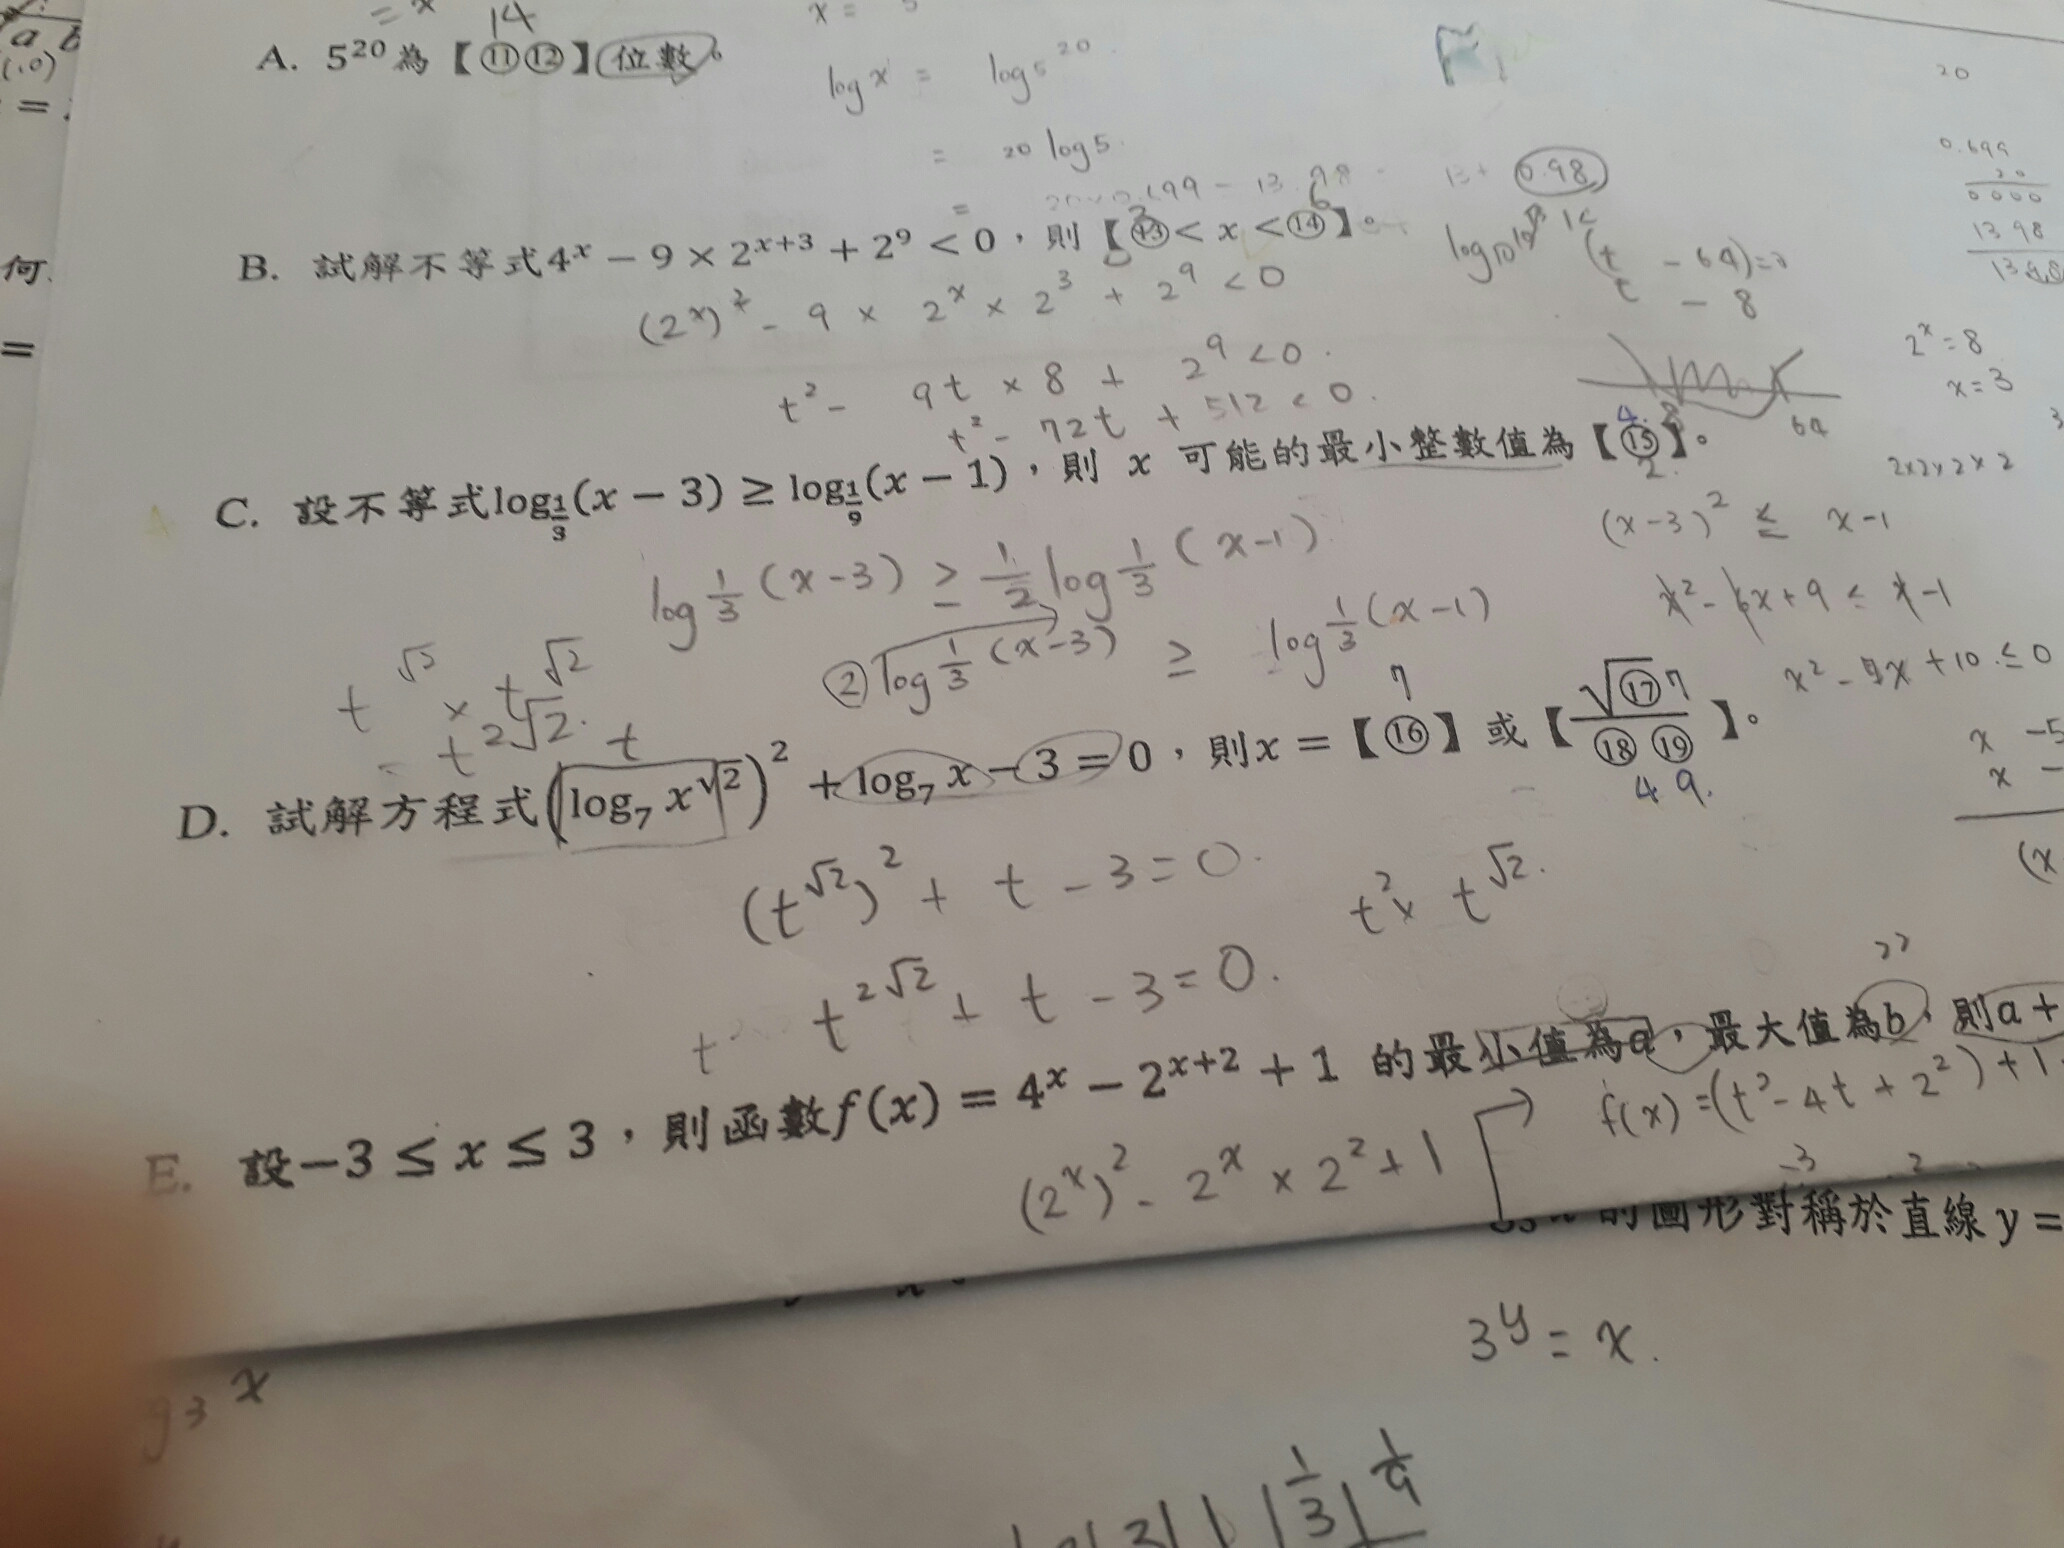 14
A. 5²⁰為【⑪⑫】位數。
log x = log 5²⁰
= 20 log 5
13+ 0.98
0.699
20
0000
1398
3 6
B. 試解不等式4ˣ − 9 × 2ˣ⁺³ + 2⁹ < 0，則【⑬ < x < ⑭】。
(2ˣ)² - 9 × 2ˣ × 2³ + 2⁹ < 0
(t - 64)=0
t - 8
t² - 9t × 8 + 2⁹ < 0.
t² - 72t + 512 < 0.
2ˣ = 8
x = 3
8 64
4.
C. 設不等式log_{1/3}(x − 3) ≥ log_{1/9}(x − 1)，則 x 可能的最小整數值為【⑮】。
2.
2×2×2×2
log 1/3 (x-3) ≥ 1/2 log 1/3 (x-1)
② log 1/3 (x-3) ≥ log 1/3 (x-1)
(x-3)² ≤ x-1
x² - 6x + 9 ≤ x - 1
x² - 7x + 10 ≤ 0
x -5
x -
(x
t^√2 × t^√2
= t^2√2. t
7 7
D. 試解方程式(log₇ x^√2)² + log₇ x − 3 = 0，則x =【⑯】或【√⑰/⑱⑲】。
4 9.
(t^√2)² + t - 3 = 0.
t² × t^√2.
t^2√2 + t - 3 = 0.
E. 設−3 ≤ x ≤ 3，則函數f(x) = 4ˣ − 2ˣ⁺² + 1 的最小值為a，最大值為b，則a +
(2ˣ)² - 2ˣ × 2² + 1
f(x) = (t² - 4t + 2²) + 1
的圖形對稱於直線 y =
3ʸ = x.
3 x
1/3 1/9